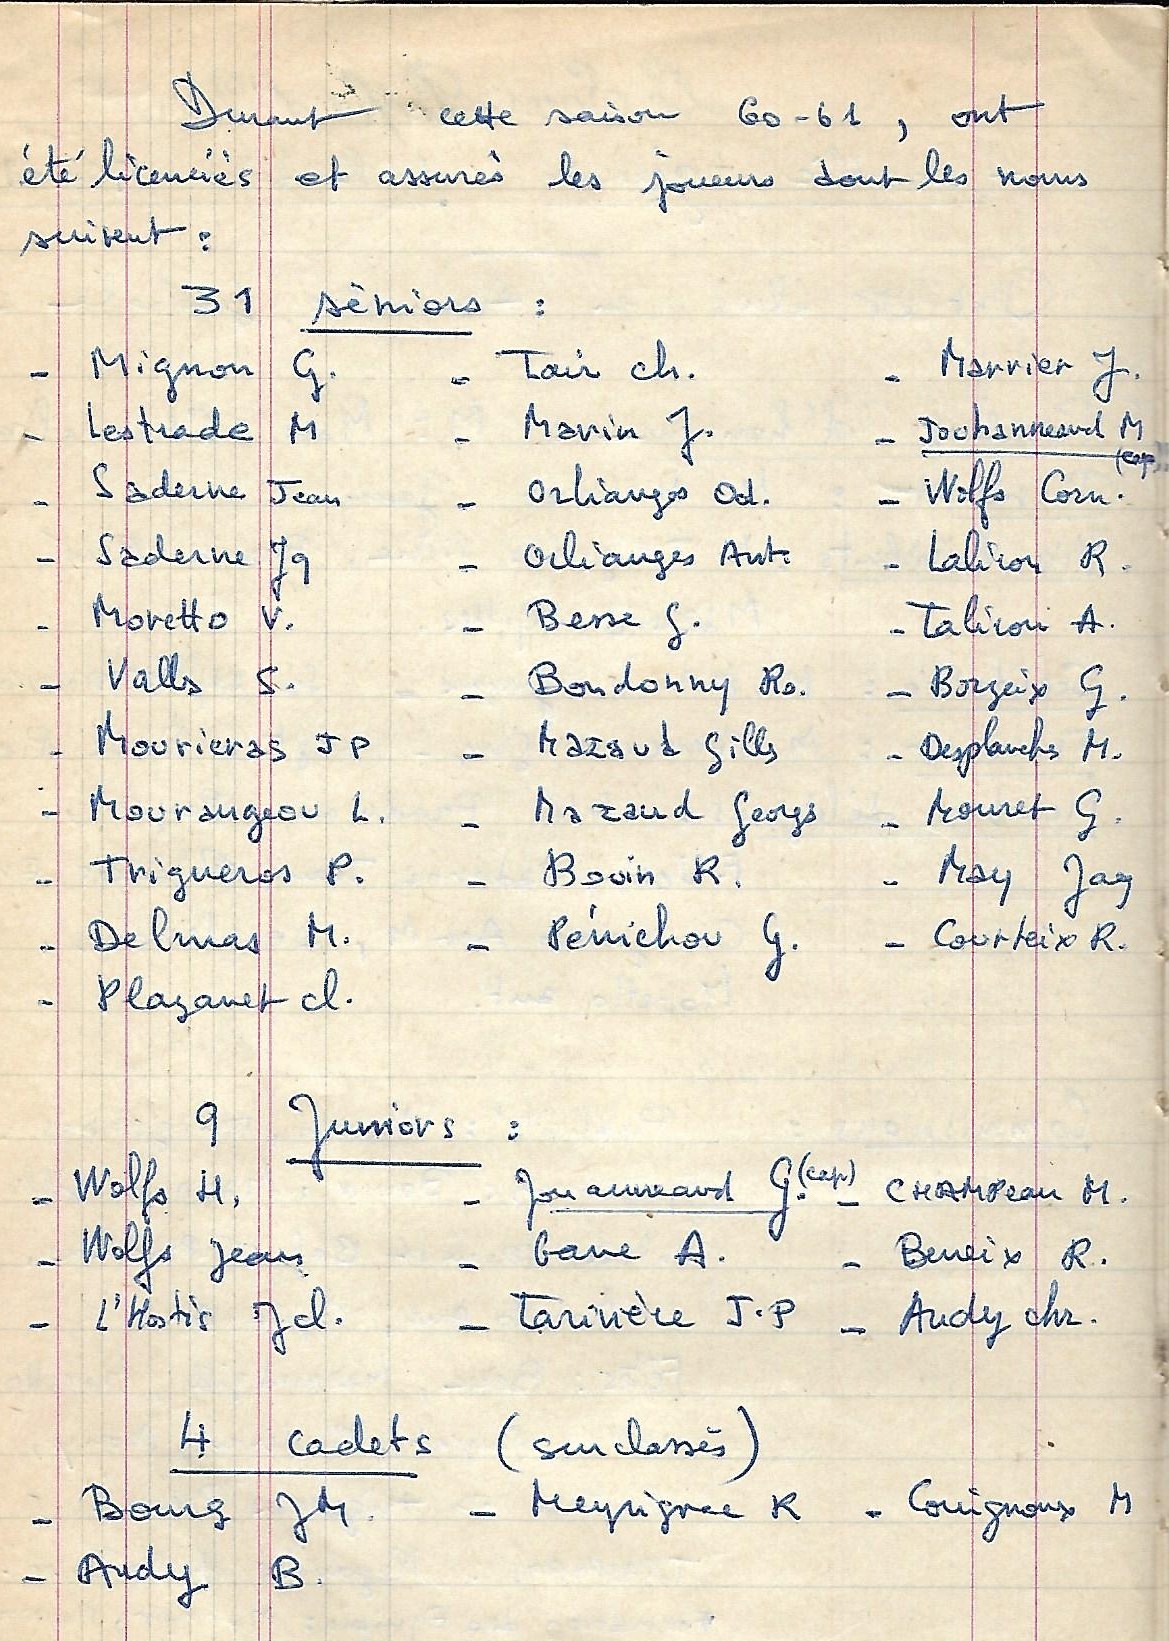 Durant cette saison 60-61, ont
été licenciés et assurés les joueurs dont les noms
suivent :
31 séniors :
- Mignon G. - Tair ch. - Marrier J.
- Lestrade M - Marin J. - Jouhanneaud M (cap)
- Saderne Jean - Orliangès Od. - Wolfs Corn.
- Saderne Jq - Orlianges Ant. - Laliron R.
- Moretto V. - Besse G. - Taliron A.
- Valls S. - Bondonny Ro. - Borzeix G.
- Mourieras JP - Mazaud Gills - Desplanches M.
- Mourangeou L. - Mazaud Georgs - Mouret G.
- Trigueros P. - Bouin R. - May Jaq
- Delmas M. - Pénichou G. - Courteix R.
- Plazanet cl.
9 Juniors :
- Wolfs H. - Jouanneaud G. (cap) - CHAMPeau M.
- Wolfs Jean - Gane A. - Beneix R.
- L'Hostis Jcl. - Tarinière J.P - Audy chr.
4 cadets (surclassés)
- Bourg JM. - Meyrignac R - Couignoux M
- Audy B.